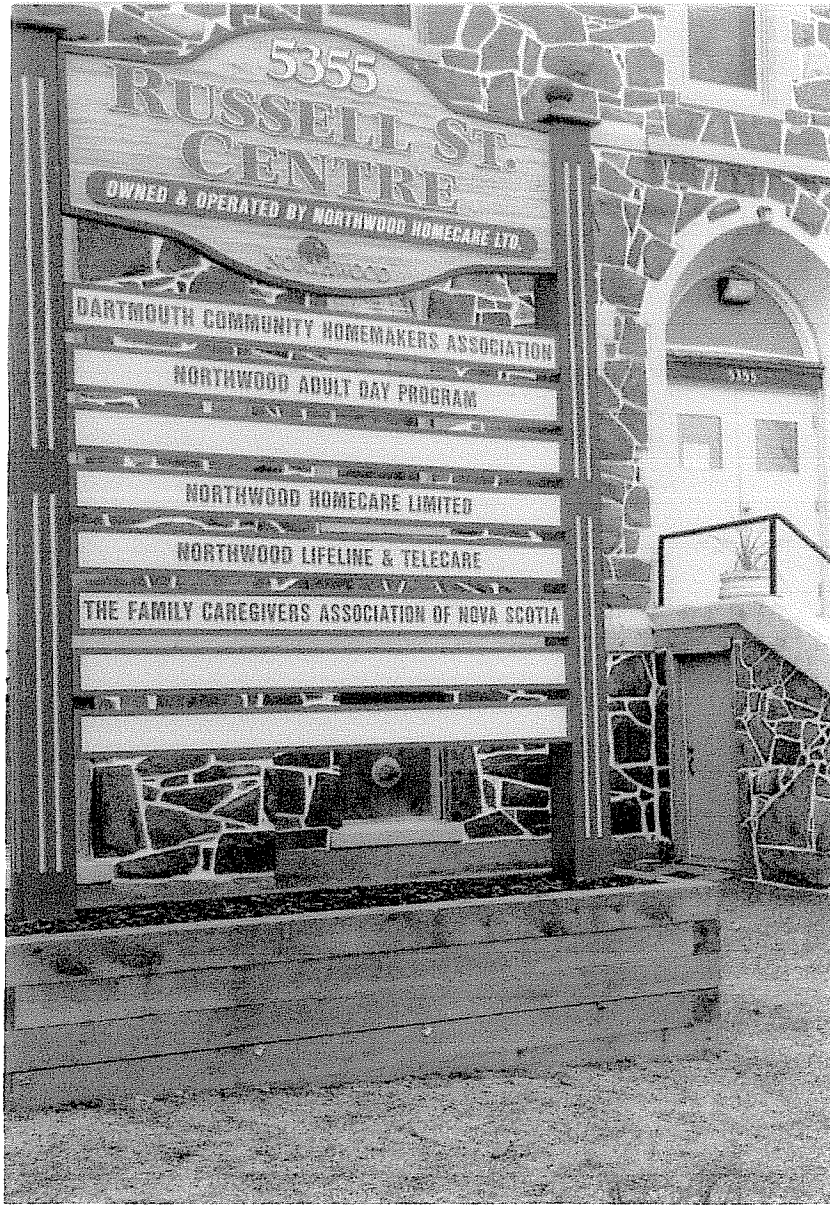 5355
RUSSELL ST.
CENTRE
OWNED & OPERATED BY NORTHWOOD HOMECARE LTD.
NORTHWOOD
DARTMOUTH COMMUNITY HOMEMAKERS ASSOCIATION
NORTHWOOD ADULT DAY PROGRAM
NORTHWOOD HOMECARE LIMITED
NORTHWOOD LIFELINE & TELECARE
THE FAMILY CAREGIVERS ASSOCIATION OF NOVA SCOTIA
5355